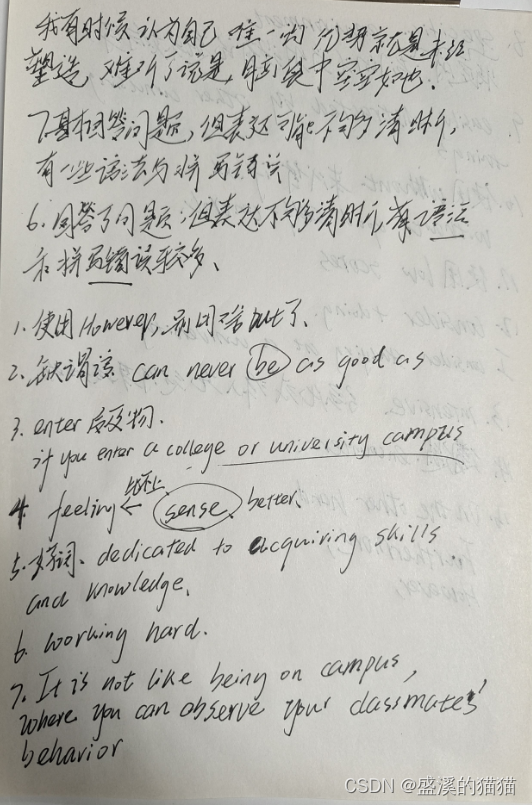 我有时候认为自己唯一的优势就是未经
塑造，难听了说是，目前袋中空空如也.
7.基本回答问题，但表达可能不够清晰，
有一些语法与拼写错误
6.回答了问题：但表达不够清晰，语法
和拼写错误较多、
1.使用However，别用啥but了、
2.缺谓语 can never be as good as
3.enter 后及物.
if you enter a college or university campus
4 feeling ← 比不上 sense better.
5.好词、dedicated to acquiring skills
and knowledge.
6. working hard.
7. It is not like being on campus,
where you can observe your classmates'
behavior
CSDN @盛溪的猫猫